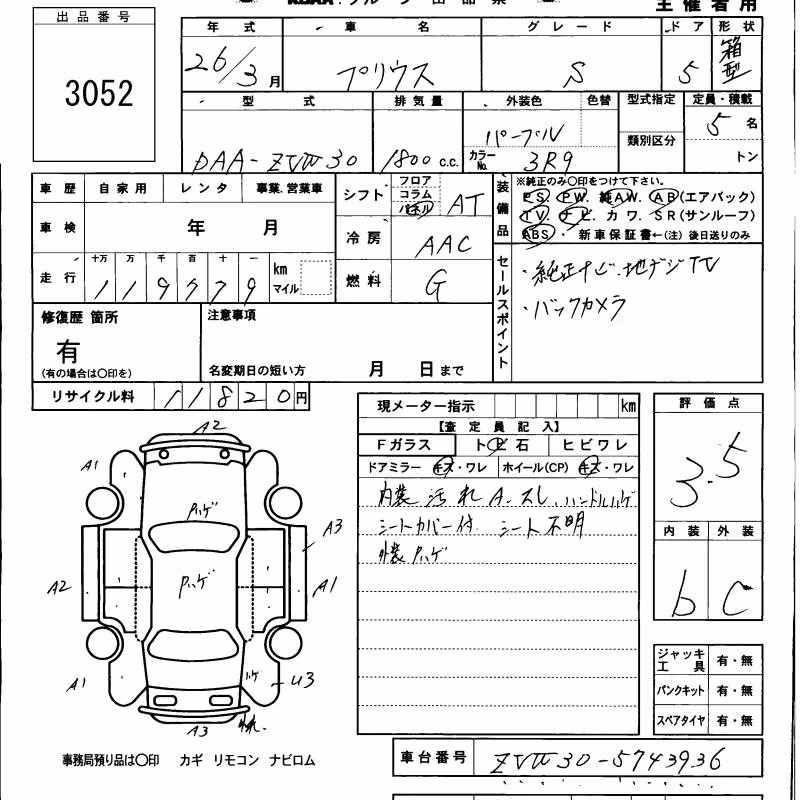 主催者用
出品番号
3052
年式 車名 グレード ドア 形状
26/3月 プリウス S 5 箱型
型式 排気量 外装色 色替 型式指定 定員・積載
DAA-ZVW30 1800 c.c. パープル 類別区分 5名
カラーNo. 3R9 トン
車歴 自家用 レンタ 事業.営業車
車検 年 月
走行 十万 万 千 百 十 一 km マイル
119779
シフト フロア コラム パネル AT
冷房 AAC
燃料 G
装備品 ※純正のみ○印をつけて下さい。
PS. PW. 純AW. AB(エアバック)
TV. ナビ. カワ. SR(サンルーフ)
ABS. 新車保証書←(注) 後日送りのみ
セールスポイント
・純正ナビ.地デジTV
・バックカメラ
修復歴 箇所
有
(有の場合は○印を)
注意事項
名変期日の短い方 月 日まで
リサイクル料 11820円
現メーター指示 km
【査定員記入】
Fガラス トビ石 ヒビワレ
ドアミラー キズ・ワレ ホイール(CP) キズ・ワレ
内装 汚れ A.スレ.ハンドルハゲ
シートカバー付. シート不明
外装 ハゲ
評価点
3.5
内装 外装
b C
ジャッキ工具 有・無
パンクキット 有・無
スペアタイヤ 有・無
A2
A1
ハゲ
A3
A2
ハゲ
A1
A1
ハゲ
U3
A3
事務局預り品は○印 カギ リモコン ナビロム
車台番号 ZVW30-5743936